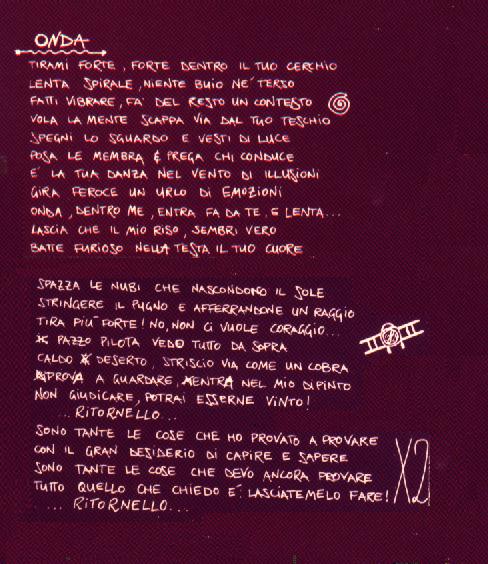 ONDA
TIRAMI FORTE, FORTE DENTRO IL TUO CERCHIO
LENTA SPIRALE, NIENTE BUIO NE' TERSO
FATTI VIBRARE, FA' DEL RESTO UN CONTESTO
VOLA LA MENTE SCAPPA VIA DAL TUO TESCHIO
SPEGNI LO SGUARDO E VESTI DI LUCE
POSA LE MEMBRA & PREGA CHI CONDUCE
E' LA TUA DANZA NEL VENTO DI ILLUSIONI
GIRA FEROCE UN URLO DI EMOZIONI
ONDA, DENTRO ME, ENTRA FA DA TE, E LENTA...
LASCIA CHE IL MIO RISO, SEMBRI VERO
BATTE FURIOSO NELLA TESTA IL TUO CUORE
SPAZZA LE NUBI CHE NASCONDONO IL SOLE
STRINGERE IL PUGNO E AFFERRANDONE UN RAGGIO
TIRA PIU' FORTE! NO, NON CI VUOLE CORAGGIO...
PAZZO PILOTA VEDO TUTTO DA SOPRA
CALDO DESERTO, STRISCIO VIA COME UN COBRA
PROVA A GUARDARE, MENTRA NEL MIO DIPINTO
NON GIUDICARE, POTRAI ESSERNE VINTO!
...RITORNELLO...
SONO TANTE LE COSE CHE HO PROVATO A PROVARE
CON IL GRAN DESIDERIO DI CAPIRE E SAPERE
SONO TANTE LE COSE CHE DEVO ANCORA PROVARE
TUTTO QUELLO CHE CHIEDO E' LASCIATEMELO FARE!
X2
...RITORNELLO...